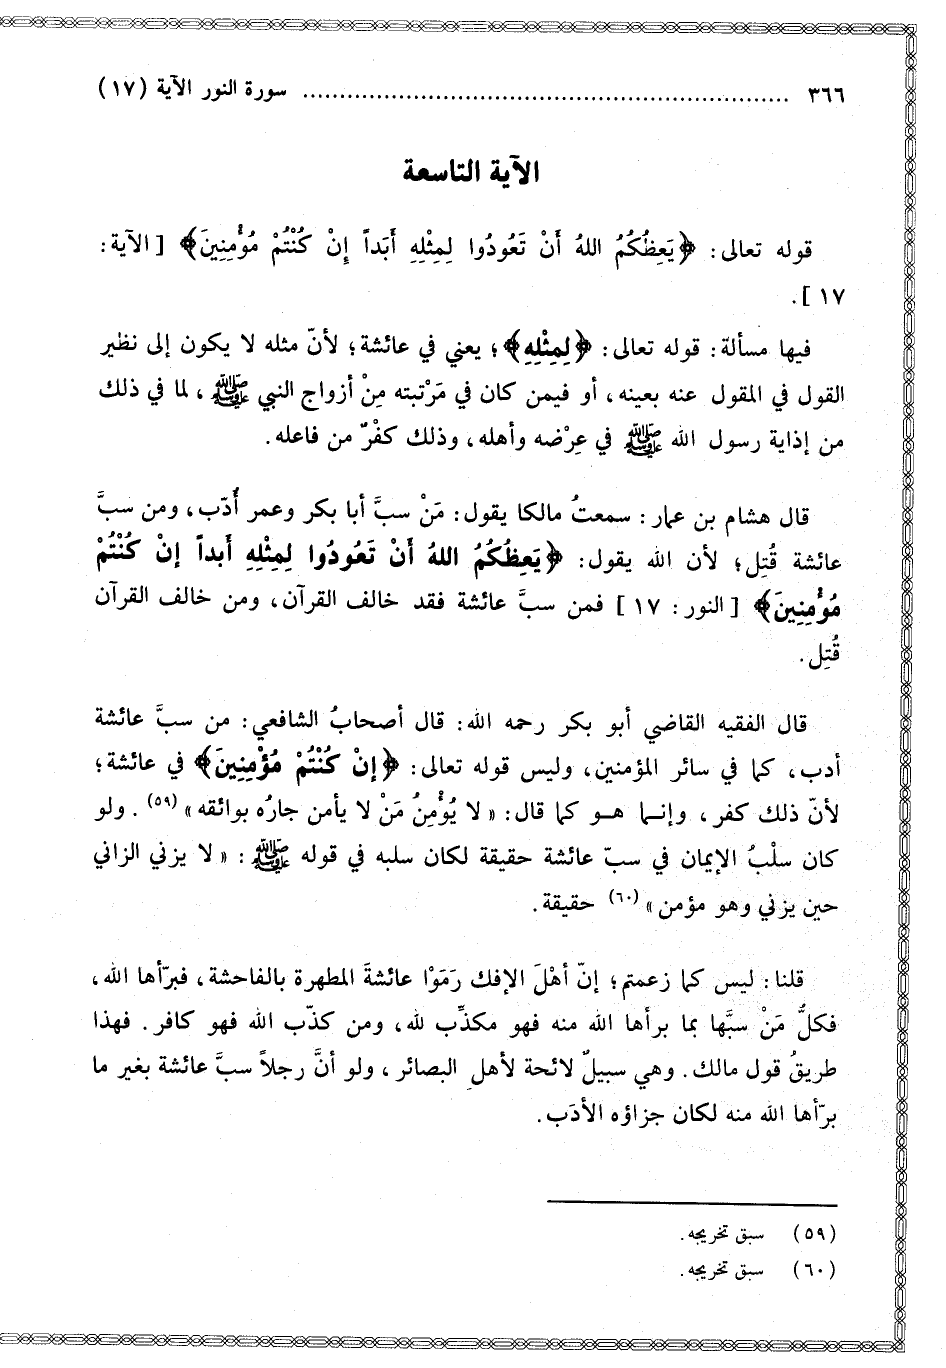 ٣٦٦ ................................................................ سورة النور الآية (١٧)
الآية التاسعة
قوله تعالى: ﴿يَعِظُكُمُ اللهُ أَنْ تَعُودُوا لِمِثْلِهِ أَبَداً إِنْ كُنْتُمْ مُؤْمِنِينَ﴾ [الآية:
١٧].
فيها مسألة: قوله تعالى: ﴿لِمِثْلِهِ﴾؛ يعني في عائشة؛ لأنّ مثله لا يكون إلى نظير
القول في المقول عنه بعينه، أو فيمن كان في مَرْتبته مِنْ أزواج النبي ﷺ، لما في ذلك
من إذاية رسول الله ﷺ في عِرْضه وأهله، وذلك كفْرٌ من فاعله.
قال هشام بن عمار: سمعتُ مالكا يقول: مَنْ سبَّ أبا بكر وعمر أُدّب، ومن سبَّ
عائشة قُتِل؛ لأن الله يقول: ﴿يَعِظُكُمُ اللهُ أَنْ تَعُودُوا لِمِثْلِهِ أَبداً إنْ كُنْتُمْ
مُؤْمِنِينَ﴾ [النور: ١٧] فمن سبَّ عائشة فقد خالف القرآن، ومن خالف القرآن
قُتِل.
قال الفقيه القاضي أبو بكر رحمه الله: قال أصحابُ الشافعي: من سبَّ عائشة
أدب، كما في سائر المؤمنين، وليس قوله تعالى: ﴿إنْ كُنْتُمْ مُؤْمِنِينَ﴾ في عائشة؛
لأنّ ذلك كفر، وإنما هو كما قال: «لا يُؤْمِنُ مَنْ لا يأمن جارُه بوائقه» (٥٩). ولو
كان سلْبُ الإيمان في سبّ عائشة حقيقة لكان سلبه في قوله ﷺ: «لا يزني الزاني
حين يزني وهو مؤمن» (٦٠) حقيقة.
قلنا: ليس كما زعمتم؛ إنّ أهْلَ الإفك رَمَوْا عائشةَ المطهرة بالفاحشة، فبرّأها الله،
فكلُّ مَنْ سبَّها بما برأها الله منه فهو مكذِّب لله، ومن كذّب الله فهو كافر. فهذا
طريقُ قول مالك. وهي سبيلٌ لائحة لأهلِ البصائر، ولو أنَّ رجلاً سبَّ عائشة بغير ما
برّأها الله منه لكان جزاؤه الأدَب.
(٥٩) سبق تخريجه.
(٦٠) سبق تخريجه.